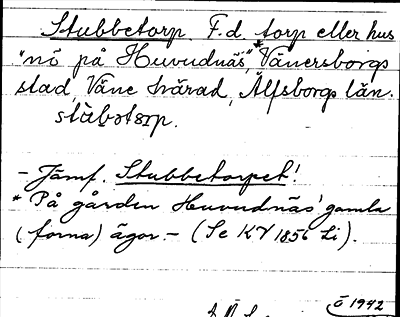 Stubbetorp. F.d. torp eller hus
"nö på Huvudnäs",* Vänersborgs
stad Väne härad, Älfsborgs län.
stàbotorp.
- Jämf. Stubbetorpet!
* På gården Huvudnäs' gamla
(forna) ägor. - (Se KV 1856 Li).
Ö 1942